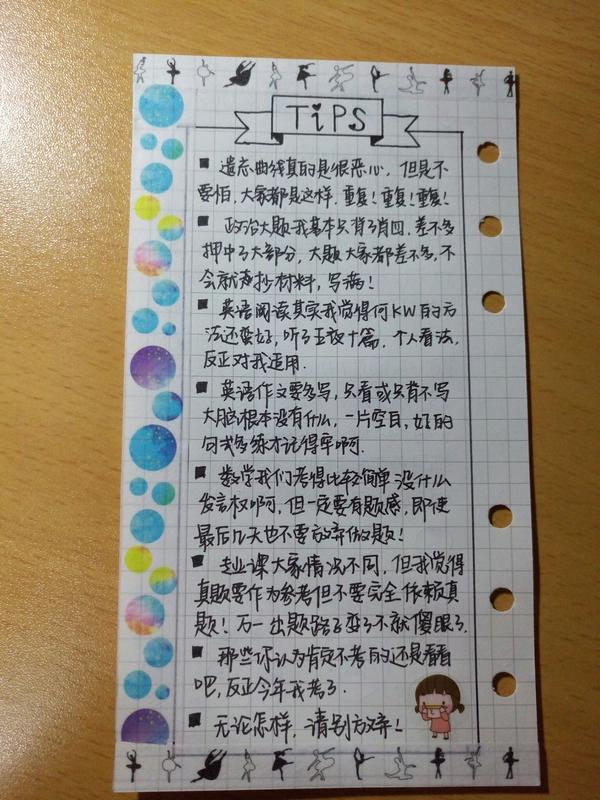 TiPS
■ 遗忘曲线真的是很恶心，但是不
要怕，大家都是这样，重复！重复！重复！
■ 政治大题我基本只背了肖四，差不多
押中了大部分，大题大家都差不多，不
会就抄材料，写满！
■ 英语阅读其实我觉得何KW的方
法还蛮好，听了五夜十篇，个人看法，
反正对我适用．
■ 英语作文要多写，只看或只背不写
大脑根本没有什么，一片空白，好的
句式多练才记得牢啊．
■ 数学我们考得比较简单没什么
发言权啊，但一定要有题感，即使
最后几天也不要放弃做题！
■ 专业课大家情况不同，但我觉得
真题要作为参考但不要完全依赖真
题！万一出题路子变了不就傻眼了．
■ 那些你认为肯定不考的还是看看
吧，反正今年我考了．
■ 无论怎样，请别放弃！